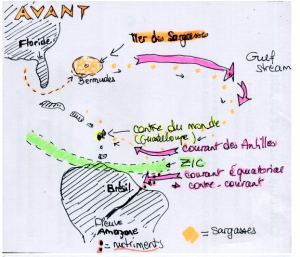 AVANT
Mer des Sargasses
Floride
Gulf
stream
Bermudes
centre du monde
(Guadeloupe)
courant des Antilles
ZIC
courant équatorial
contre-courant
Brésil
Fleuve
Amazone
= nutriments
= Sargasses